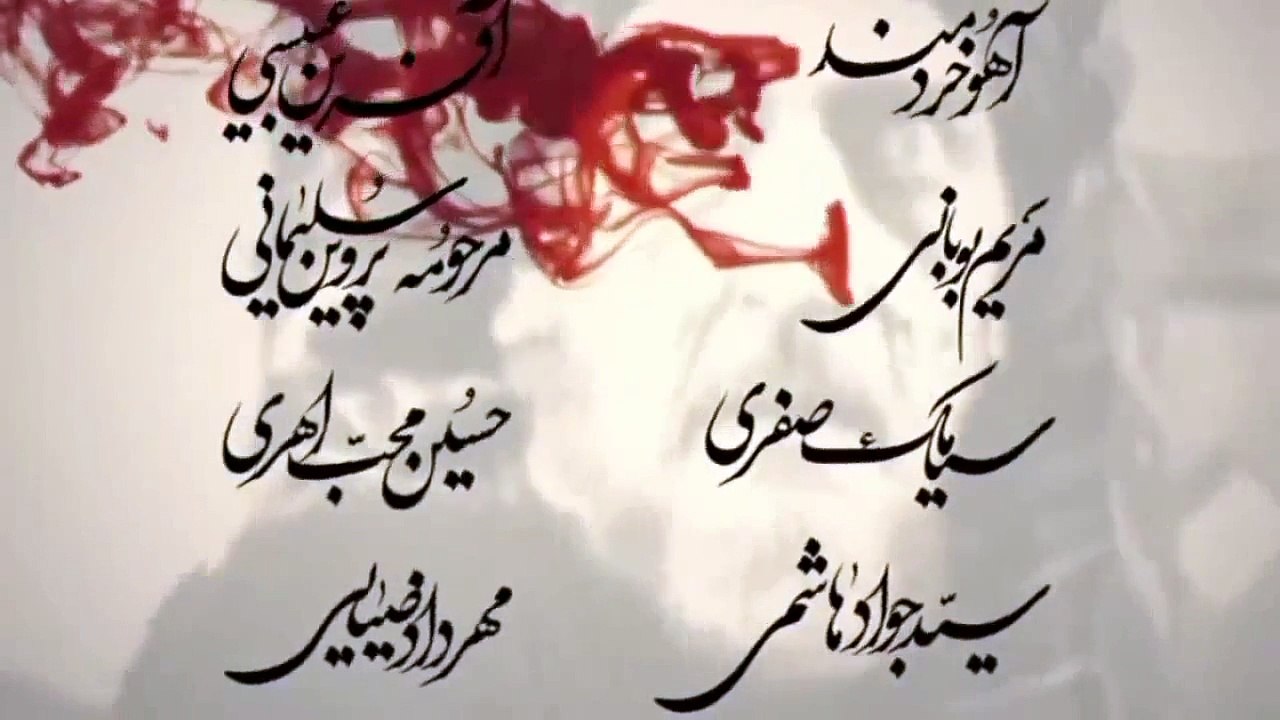 آهو خردمند    آفرین عبیسی
مریم بوبانی    مرحومه پروین سلیمانی
سیامک صفری    حسین محب اهری
سید جواد هاشمی    مهرداد ضیایی